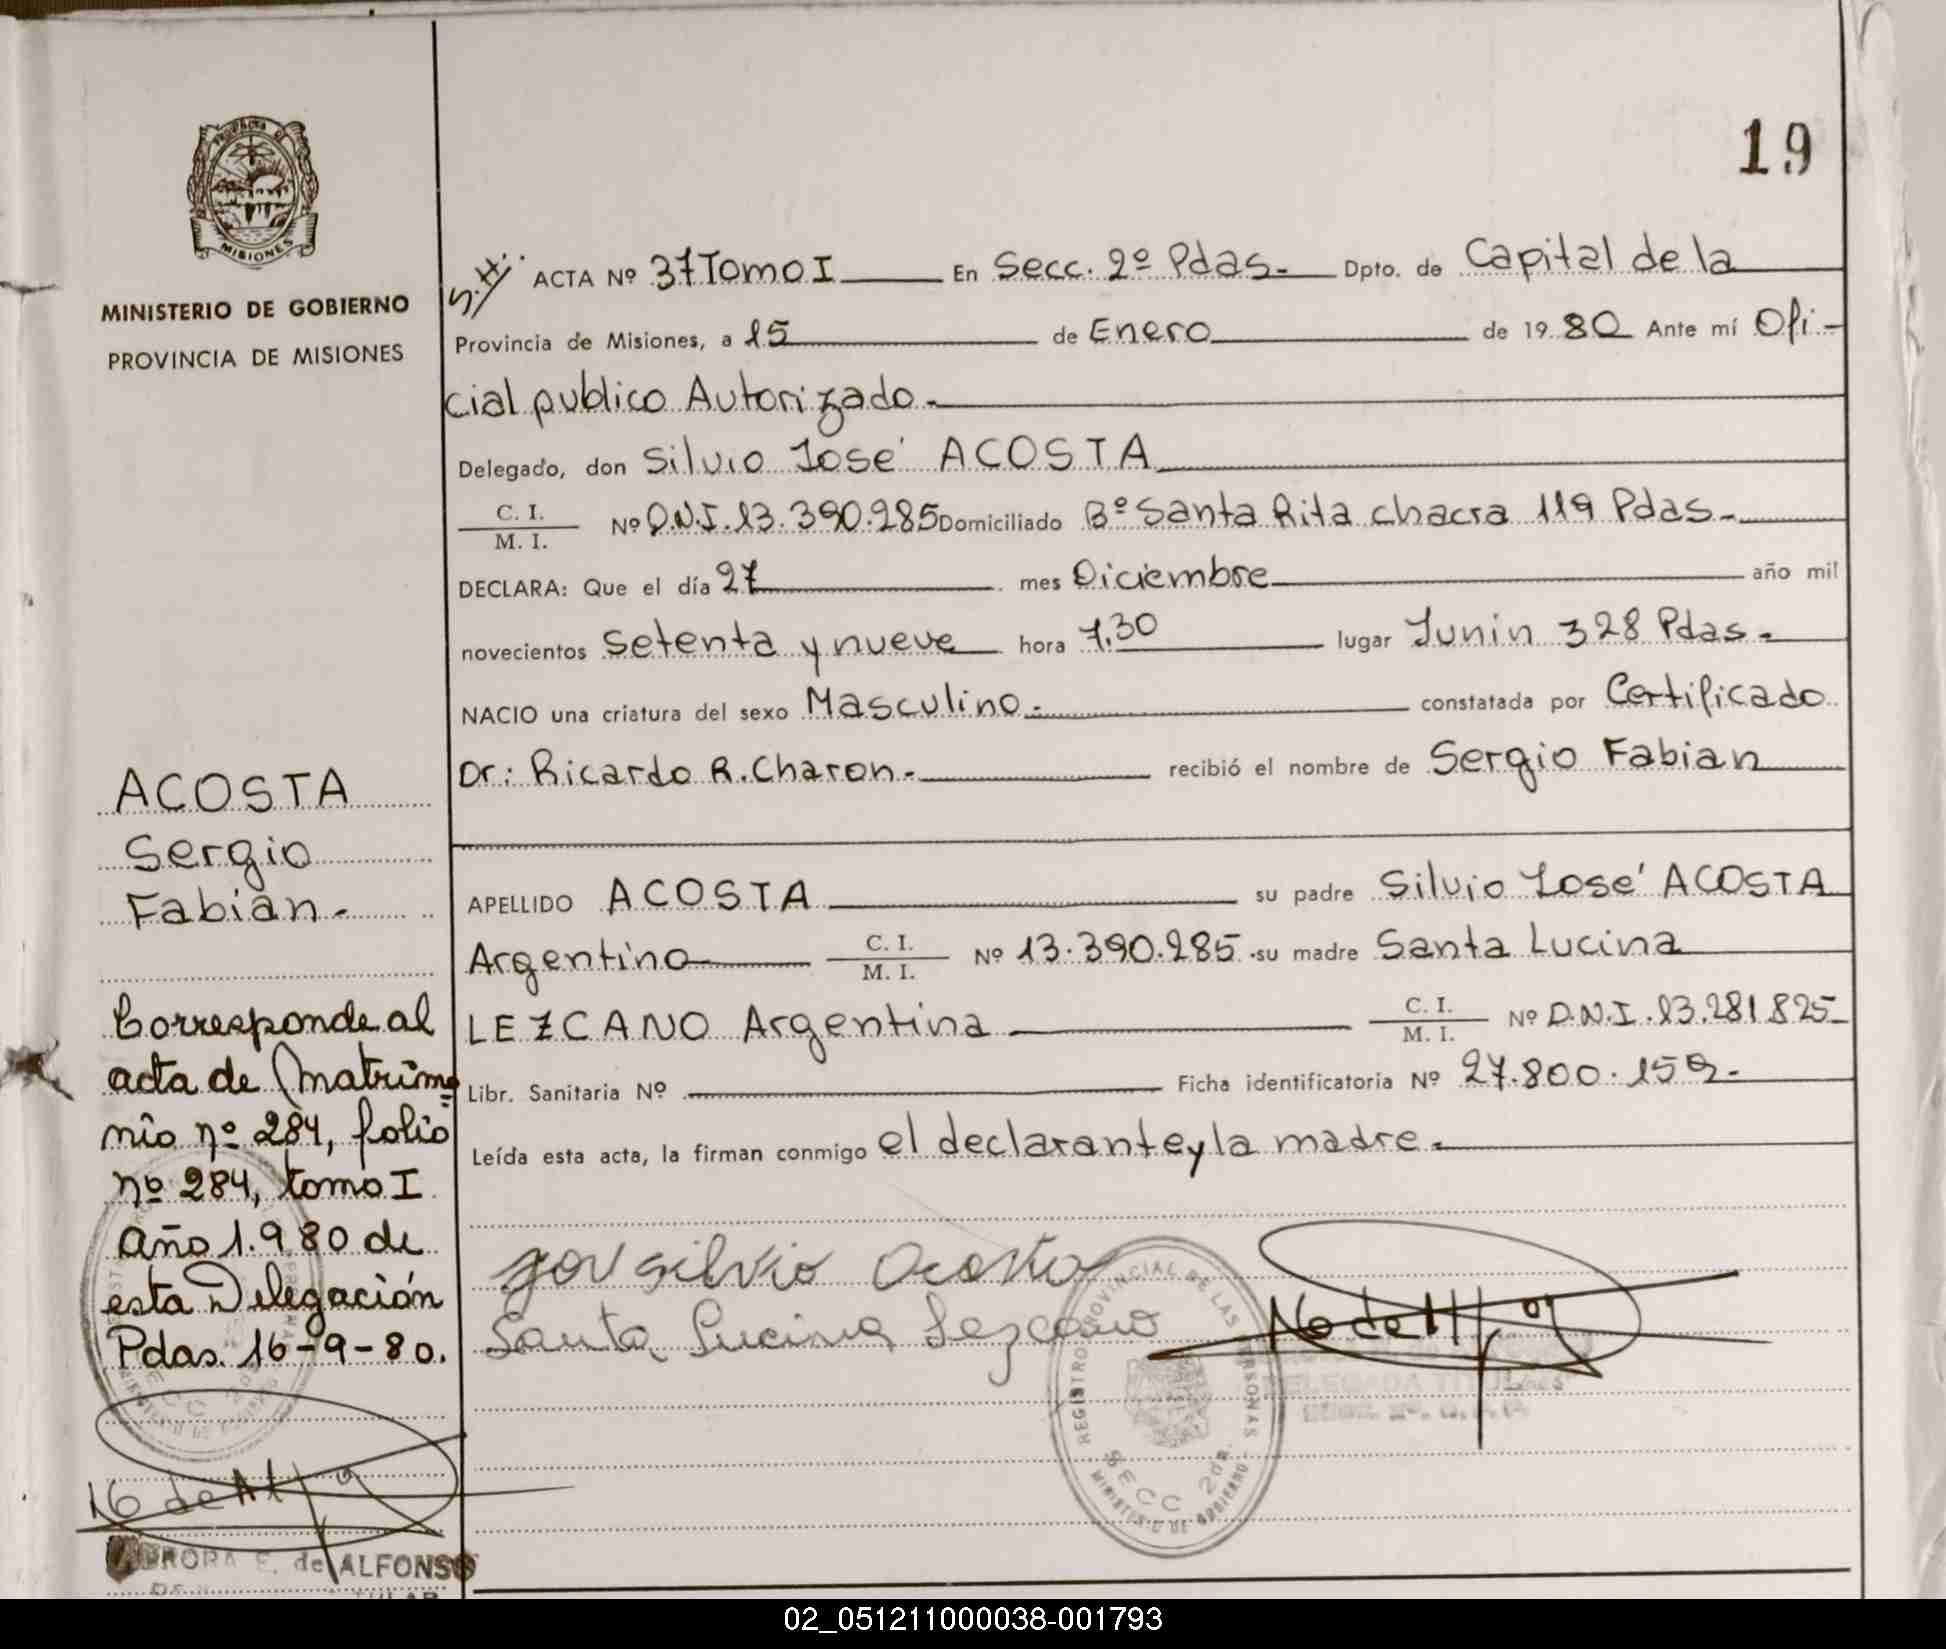 19
PROVINCIA DE
MISIONES
MINISTERIO DE GOBIERNO
PROVINCIA DE MISIONES
ACTA Nº 37 Tomo I En Secc. 2º Pdas.- Dpto. de Capital de la
Provincia de Misiones, a 15 de Enero de 1980 Ante mí Ofi-
cial publico Autorizado.-
Delegado, don Silvio José ACOSTA
C. I.
M. I.
Nº D.N.I. 13.390.285 Domiciliado Bº Santa Rita chacra 119 Pdas.-
DECLARA: Que el día 27 mes Diciembre año mil
novecientos setenta y nueve hora 7.30 lugar Junin 328 Pdas.-
NACIO una criatura del sexo Masculino.- constatada por Certificado
Dr: Ricardo R. Charon.- recibió el nombre de Sergio Fabian
APELLIDO ACOSTA su padre Silvio José ACOSTA
Argentino C. I. M. I. Nº 13.390.285.su madre Santa Lucina
LEZCANO Argentina C. I. M. I. Nº D.N.I. 13.281.825-
Libr. Sanitaria Nº Ficha identificatoria Nº 27.800.159.-
Leída esta acta, la firman conmigo el declarante y la madre.-
Silvio Acosta
Santa Lucina Lezcano
REGISTRO PROVINCIAL DE LAS PERSONAS
SECC 2da.
MINISTERIO DE GOBIERNO
DELEGADA TITULAR
ACOSTA
Sergio
Fabian.-
Corresponde al
acta de Matrimo
nio nº 284, folio
nº 284, tomo I
año 1.980 de
esta Delegación
Pdas. 16-9-80.
E. de ALFONSO